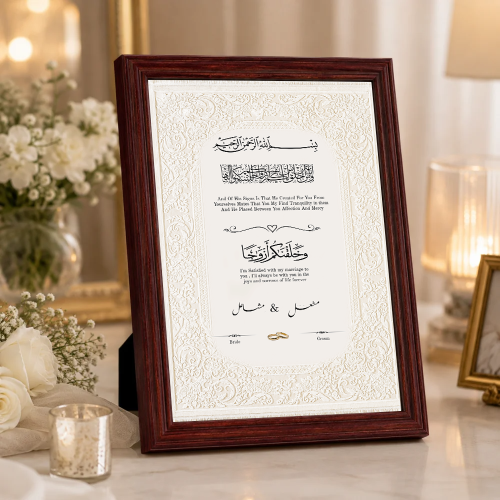 بِسْمِ اللَّهِ الرَّحْمَٰنِ الرَّحِيمِ
And Of His Signs Is That He Created For You From
Yourselves Mates That You My Find Tranquility in them
And He Placed Between You Affection And Mercy
وَخَلَقْنَاكُمْ أَزْوَاجًا
I'm Satisfied with my marriage to
you , I'll always be with you in the
joys and sorrows of life forever
مشاعل & مشعل
Bride Groom